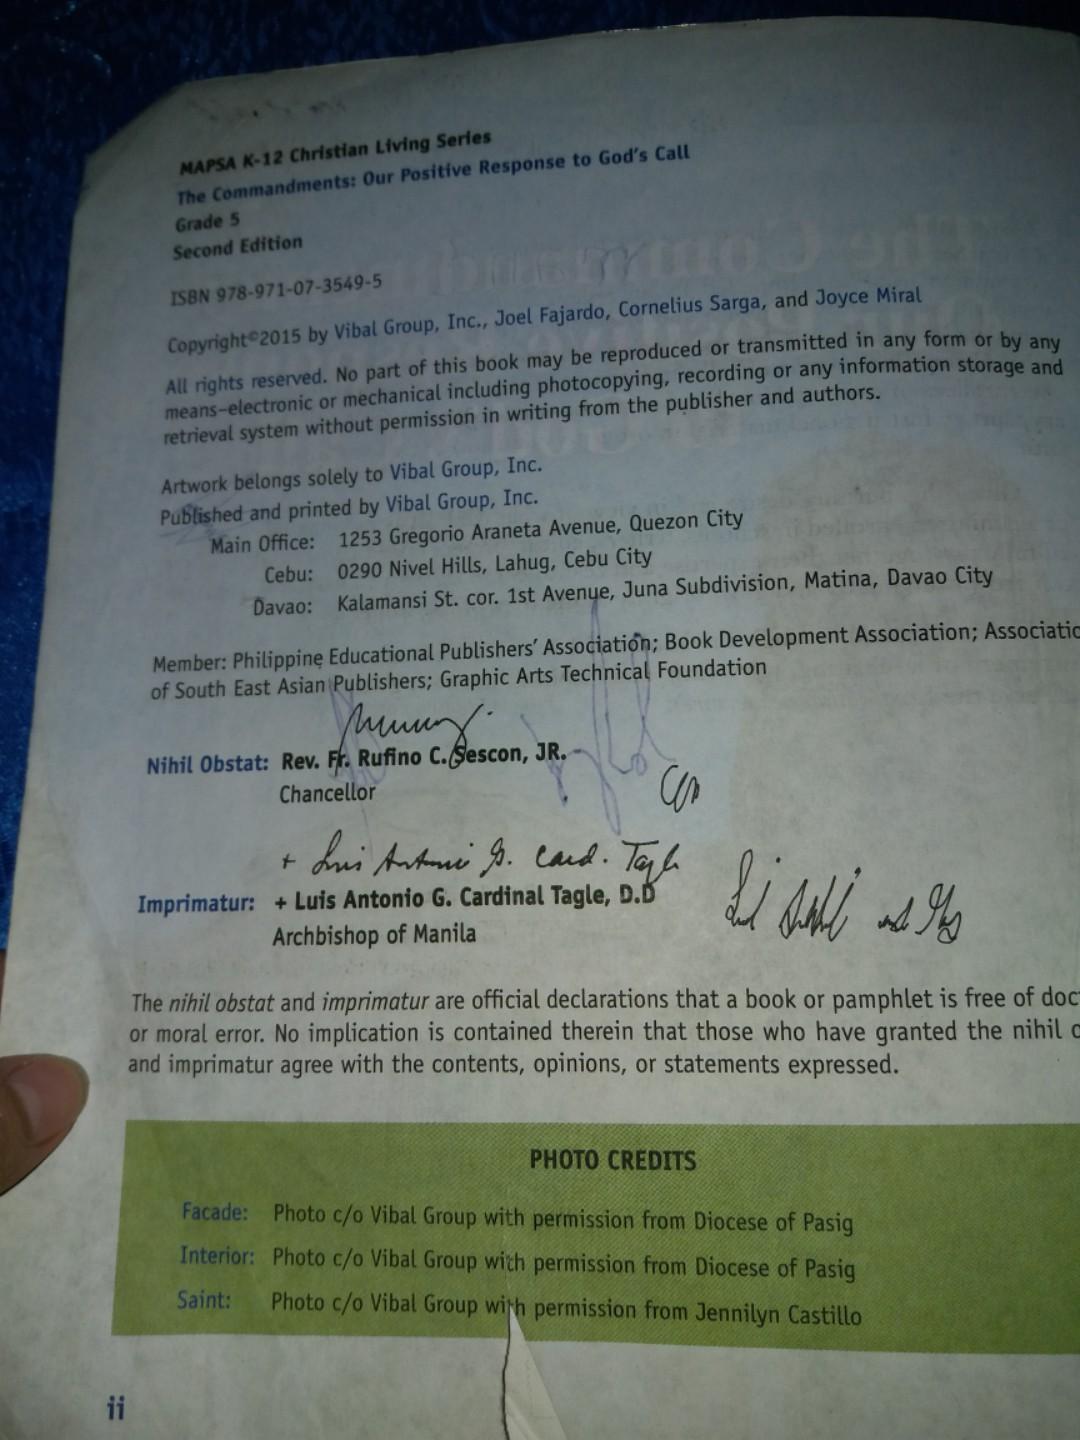 MAPSA K-12 Christian Living Series
The Commandments: Our Positive Response to God's Call
Grade 5
Second Edition
ISBN 978-971-07-3549-5
Copyright©2015 by Vibal Group, Inc., Joel Fajardo, Cornelius Sarga, and Joyce Miral
All rights reserved. No part of this book may be reproduced or transmitted in any form or by any
means–electronic or mechanical including photocopying, recording or any information storage and
retrieval system without permission in writing from the publisher and authors.
Artwork belongs solely to Vibal Group, Inc.
Published and printed by Vibal Group, Inc.
Main Office: 1253 Gregorio Araneta Avenue, Quezon City
Cebu: 0290 Nivel Hills, Lahug, Cebu City
Davao: Kalamansi St. cor. 1st Avenue, Juna Subdivision, Matina, Davao City
Member: Philippine Educational Publishers' Association; Book Development Association; Associatio
of South East Asian Publishers; Graphic Arts Technical Foundation
Nihil Obstat: Rev. Fr. Rufino C. Sescon, JR.
Chancellor
+ Luis Antonio G. Card. Tagle
Imprimatur: + Luis Antonio G. Cardinal Tagle, D.D
Archbishop of Manila
The nihil obstat and imprimatur are official declarations that a book or pamphlet is free of doc
or moral error. No implication is contained therein that those who have granted the nihil o
and imprimatur agree with the contents, opinions, or statements expressed.
PHOTO CREDITS
Facade: Photo c/o Vibal Group with permission from Diocese of Pasig
Interior: Photo c/o Vibal Group with permission from Diocese of Pasig
Saint: Photo c/o Vibal Group with permission from Jennilyn Castillo
ii